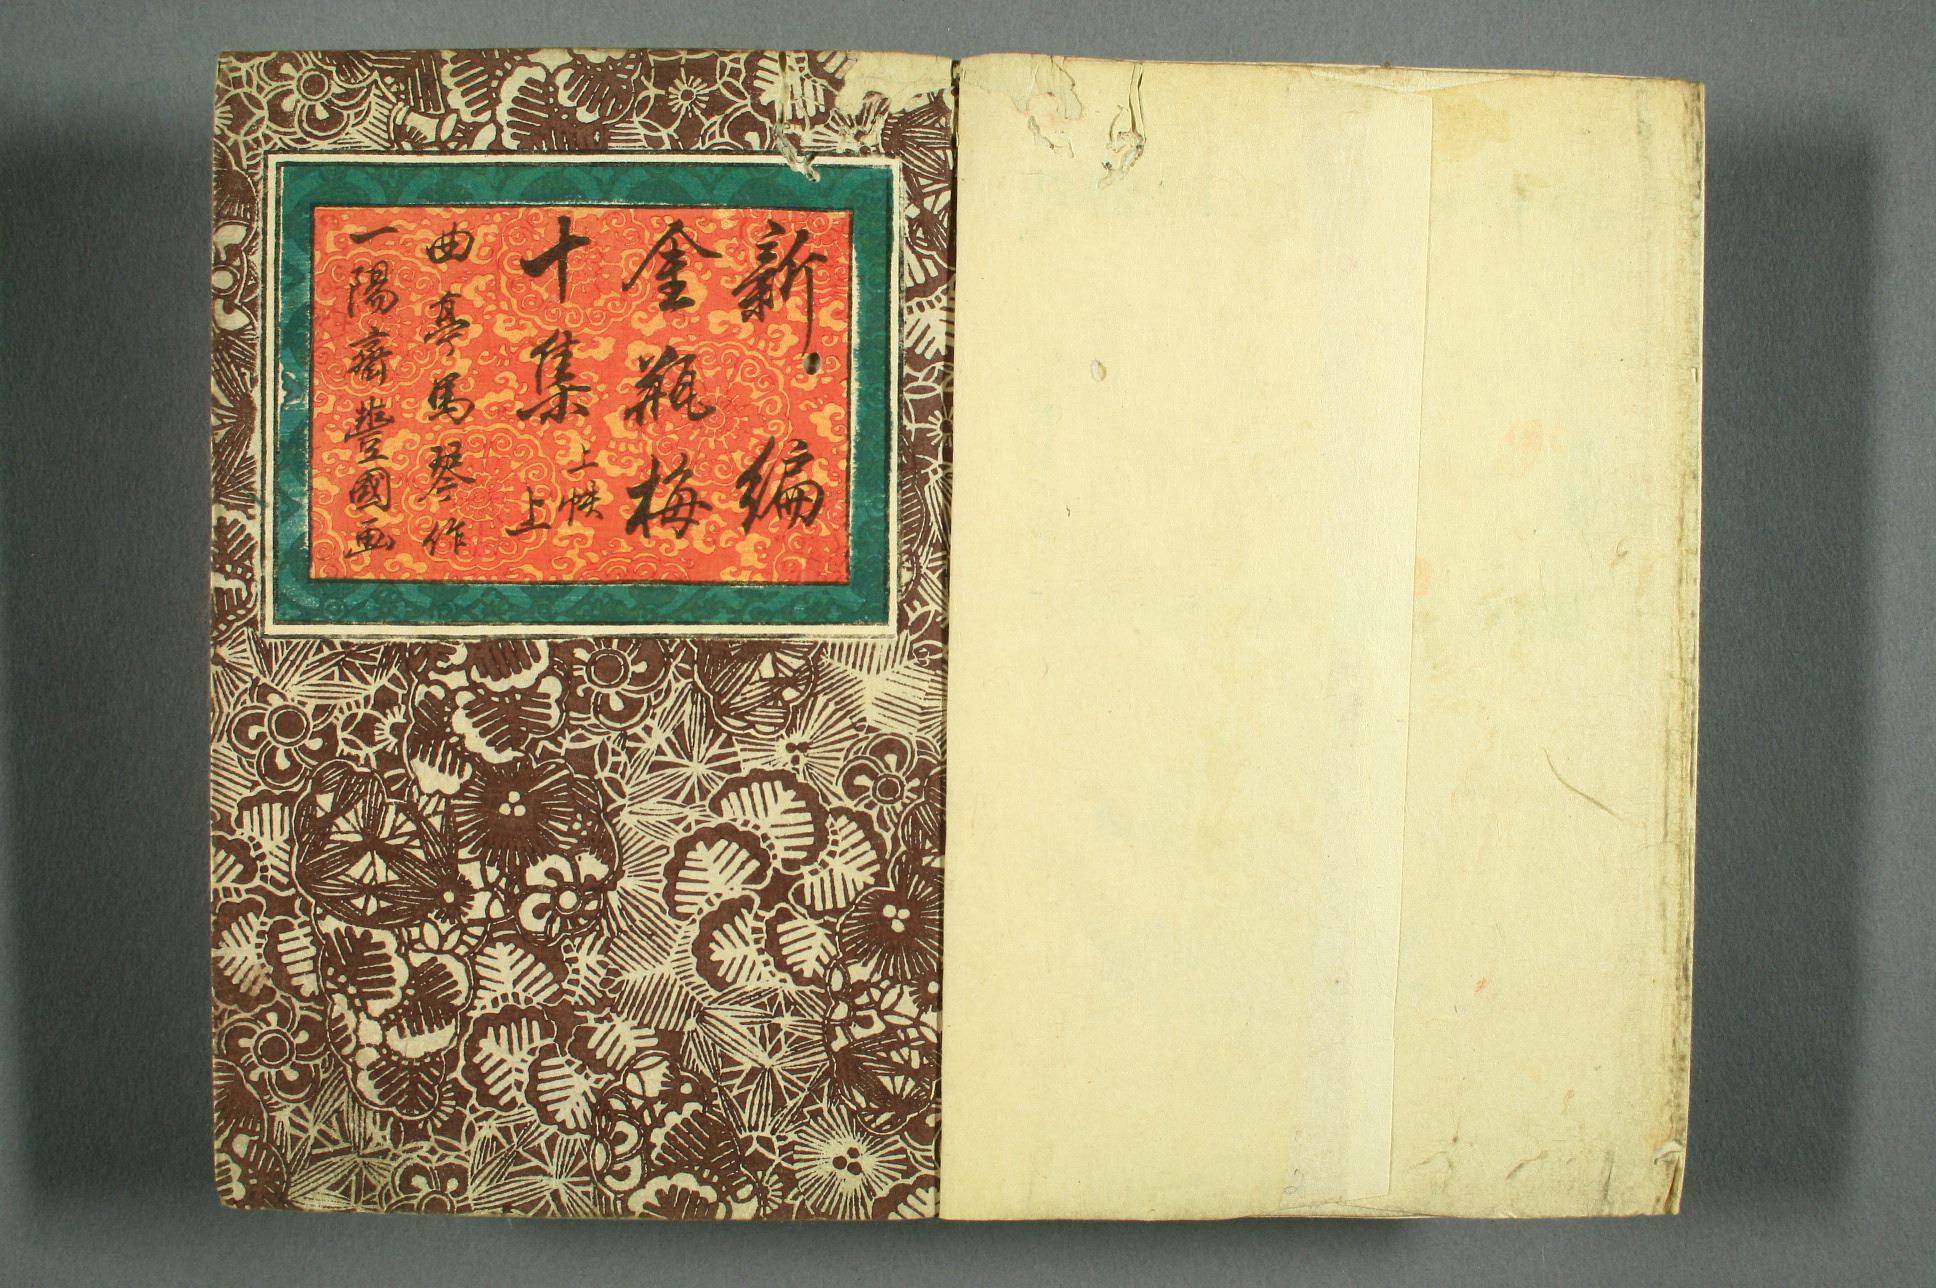 新編
金瓶梅
十集上帙上
曲亭馬琴作
一陽齋豊國画